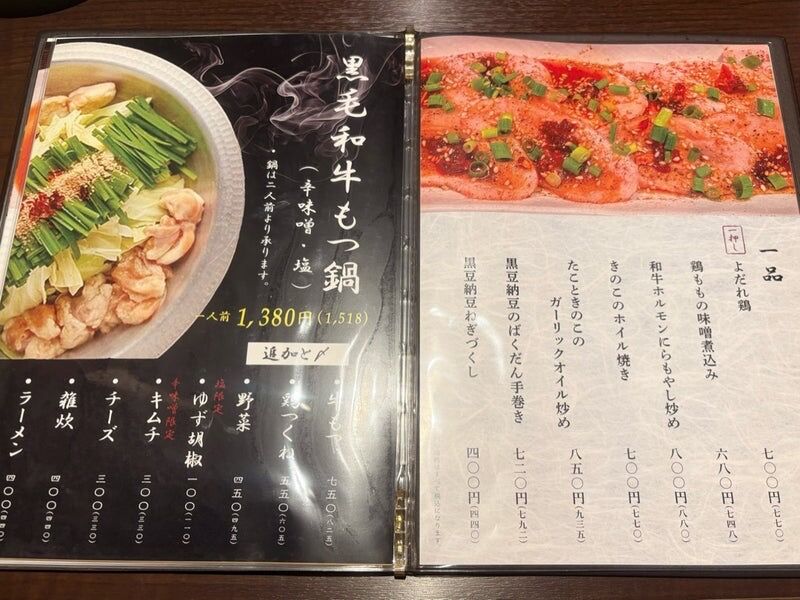 黒毛和牛もつ鍋
（辛味噌・塩）
・鍋は二人前より承ります。
一人前 1,380円(1,518)
追加と〆
・牛もつ 七五〇(八二五)
・鶏つくね 五五〇(六〇五)
・野菜 四五〇(四九五)
塩限定
・ゆず胡椒 一〇〇(一一〇)
辛味噌限定
・キムチ 三〇〇(三三〇)
・チーズ 三〇〇(三三〇)
・雑炊 四〇〇(四四〇)
・ラーメン 四〇〇(四四〇)
一品
一押し
よだれ鶏 七〇〇円(七七〇)
鶏ももの味噌煮込み 六八〇円(七四八)
和牛ホルモンにらもやし炒め 八〇〇円(八八〇)
きのこのホイル焼き 七〇〇円(七七〇)
たこときのこの
ガーリックオイル炒め 八五〇円(九三五)
黒豆納豆のばくだん手巻き 七二〇円(七九二)
黒豆納豆ねぎづくし 四〇〇円(四四〇)